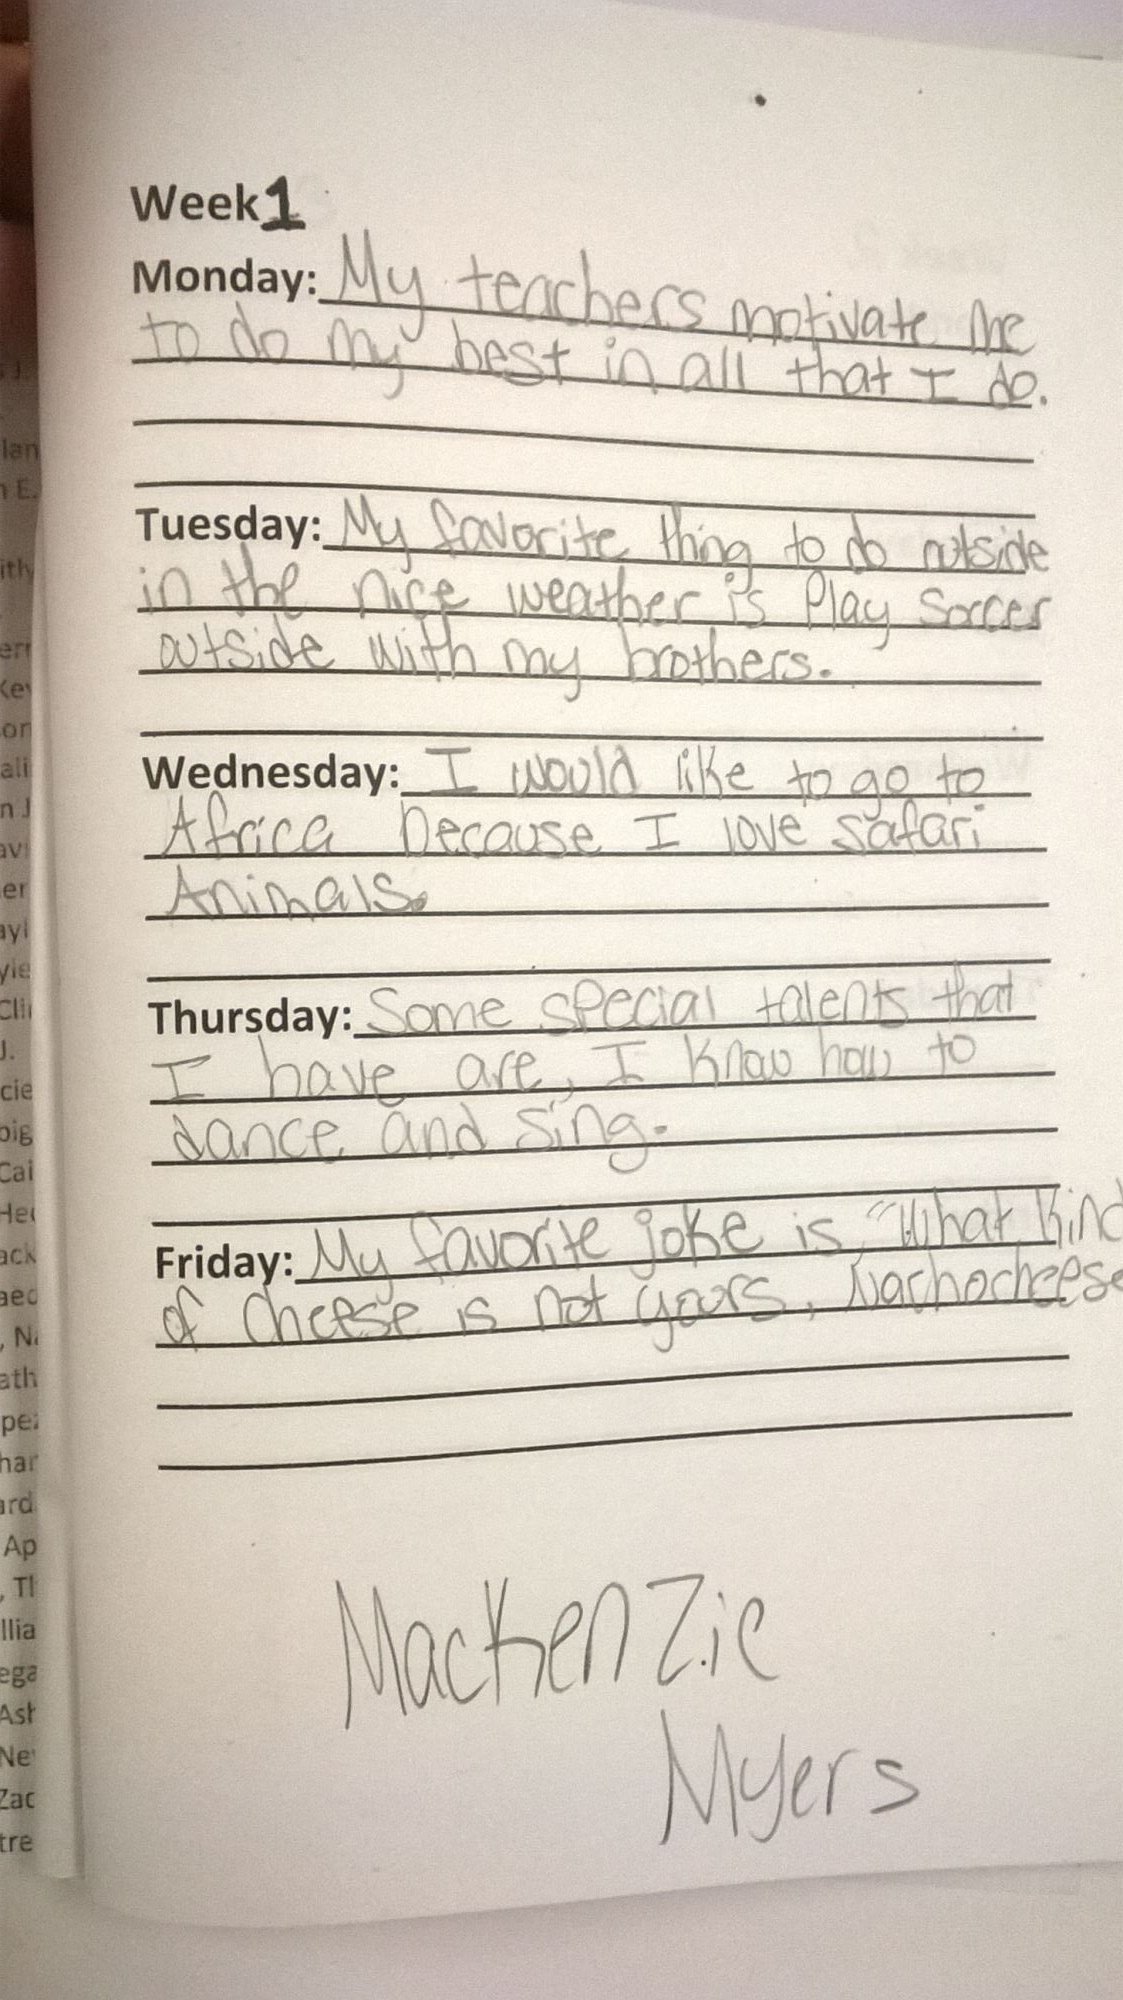 Week 1
Monday: My teachers motivate me
to do my best in all that I do.
Tuesday: My favorite thing to do outside
in the nice weather is Play Soccer
outside with my brothers.
Wednesday: I would like to go to
Africa because I love safari
Animals.
Thursday: Some special talents that
I have are, I know how to
dance and sing.
Friday: My favorite joke is, "What kind
of cheese is not yours, Nachocheese
MacKenzie
Myers